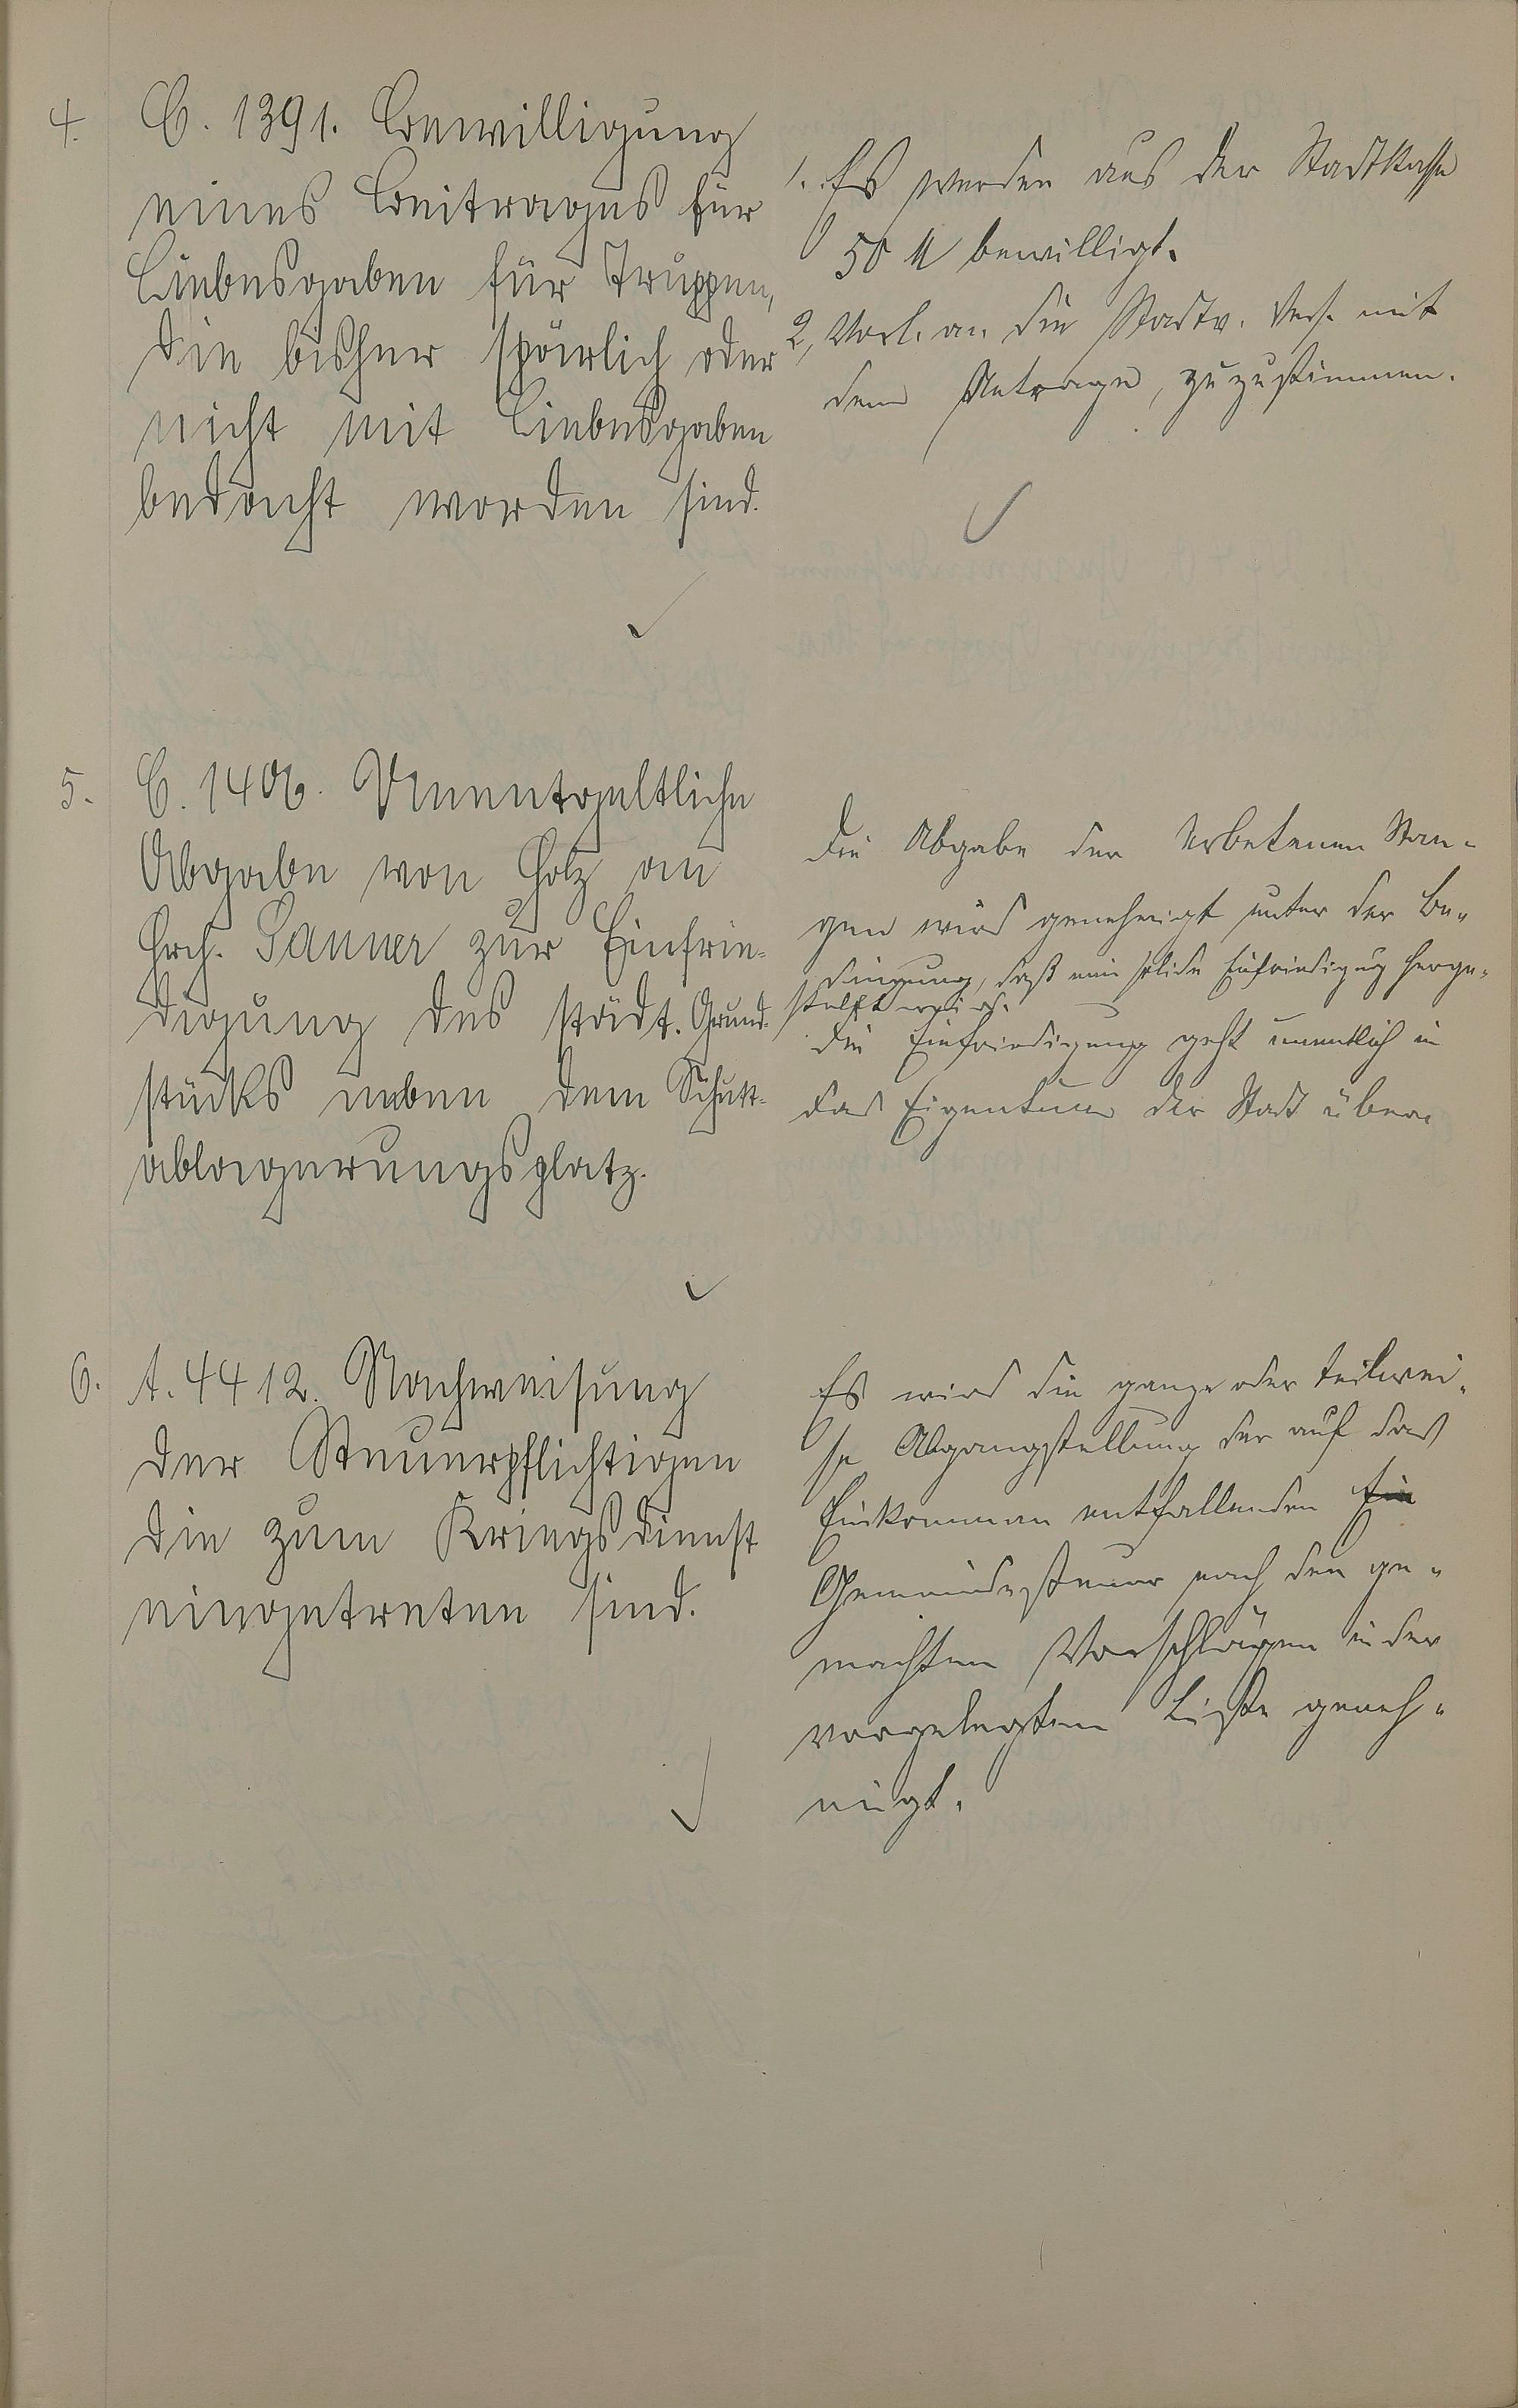 4. C. 1391. Bewilligung
eines Beitrages für
Liebesgaben für Truppen,
die bisher spärlich oder
nicht mit Liebesgaben
bedacht worden sind.
1. Es werden aus der Stadtkasse
50 M bewilligt.
2, Vorl. an die Stadtv. Vers. mit
dem Antrage, zuzustimmen.
5. C. 1406. Unentgeltliche
Abgabe von Holz an
Hrch. Sanner zur Einfrie-
digung des städt. Grund-
stücks neben dem Schutt-
ablagerungsplatz.
Die Abgabe der erbetenen Stan-
gen wird genehmigt unter der Be-
dingung, daß eine solide Einfriedigung herge-
stellt wird.
Die Einfriedigung geht unentlich in
das Eigentum der Stadt über.
6. A. 4412. Nachweisung
der Steuerpflichtigen
die zum Kriegsdienst
eingetreten sind.
Es wird die ganze oder teilwei-
se Abgangstellung der auf das
Einkommen entfallenden Ein
Gemeindesteuer nach den ge-
machten Vorschlägen in der
vorgelegten Liste geneh-
migt.